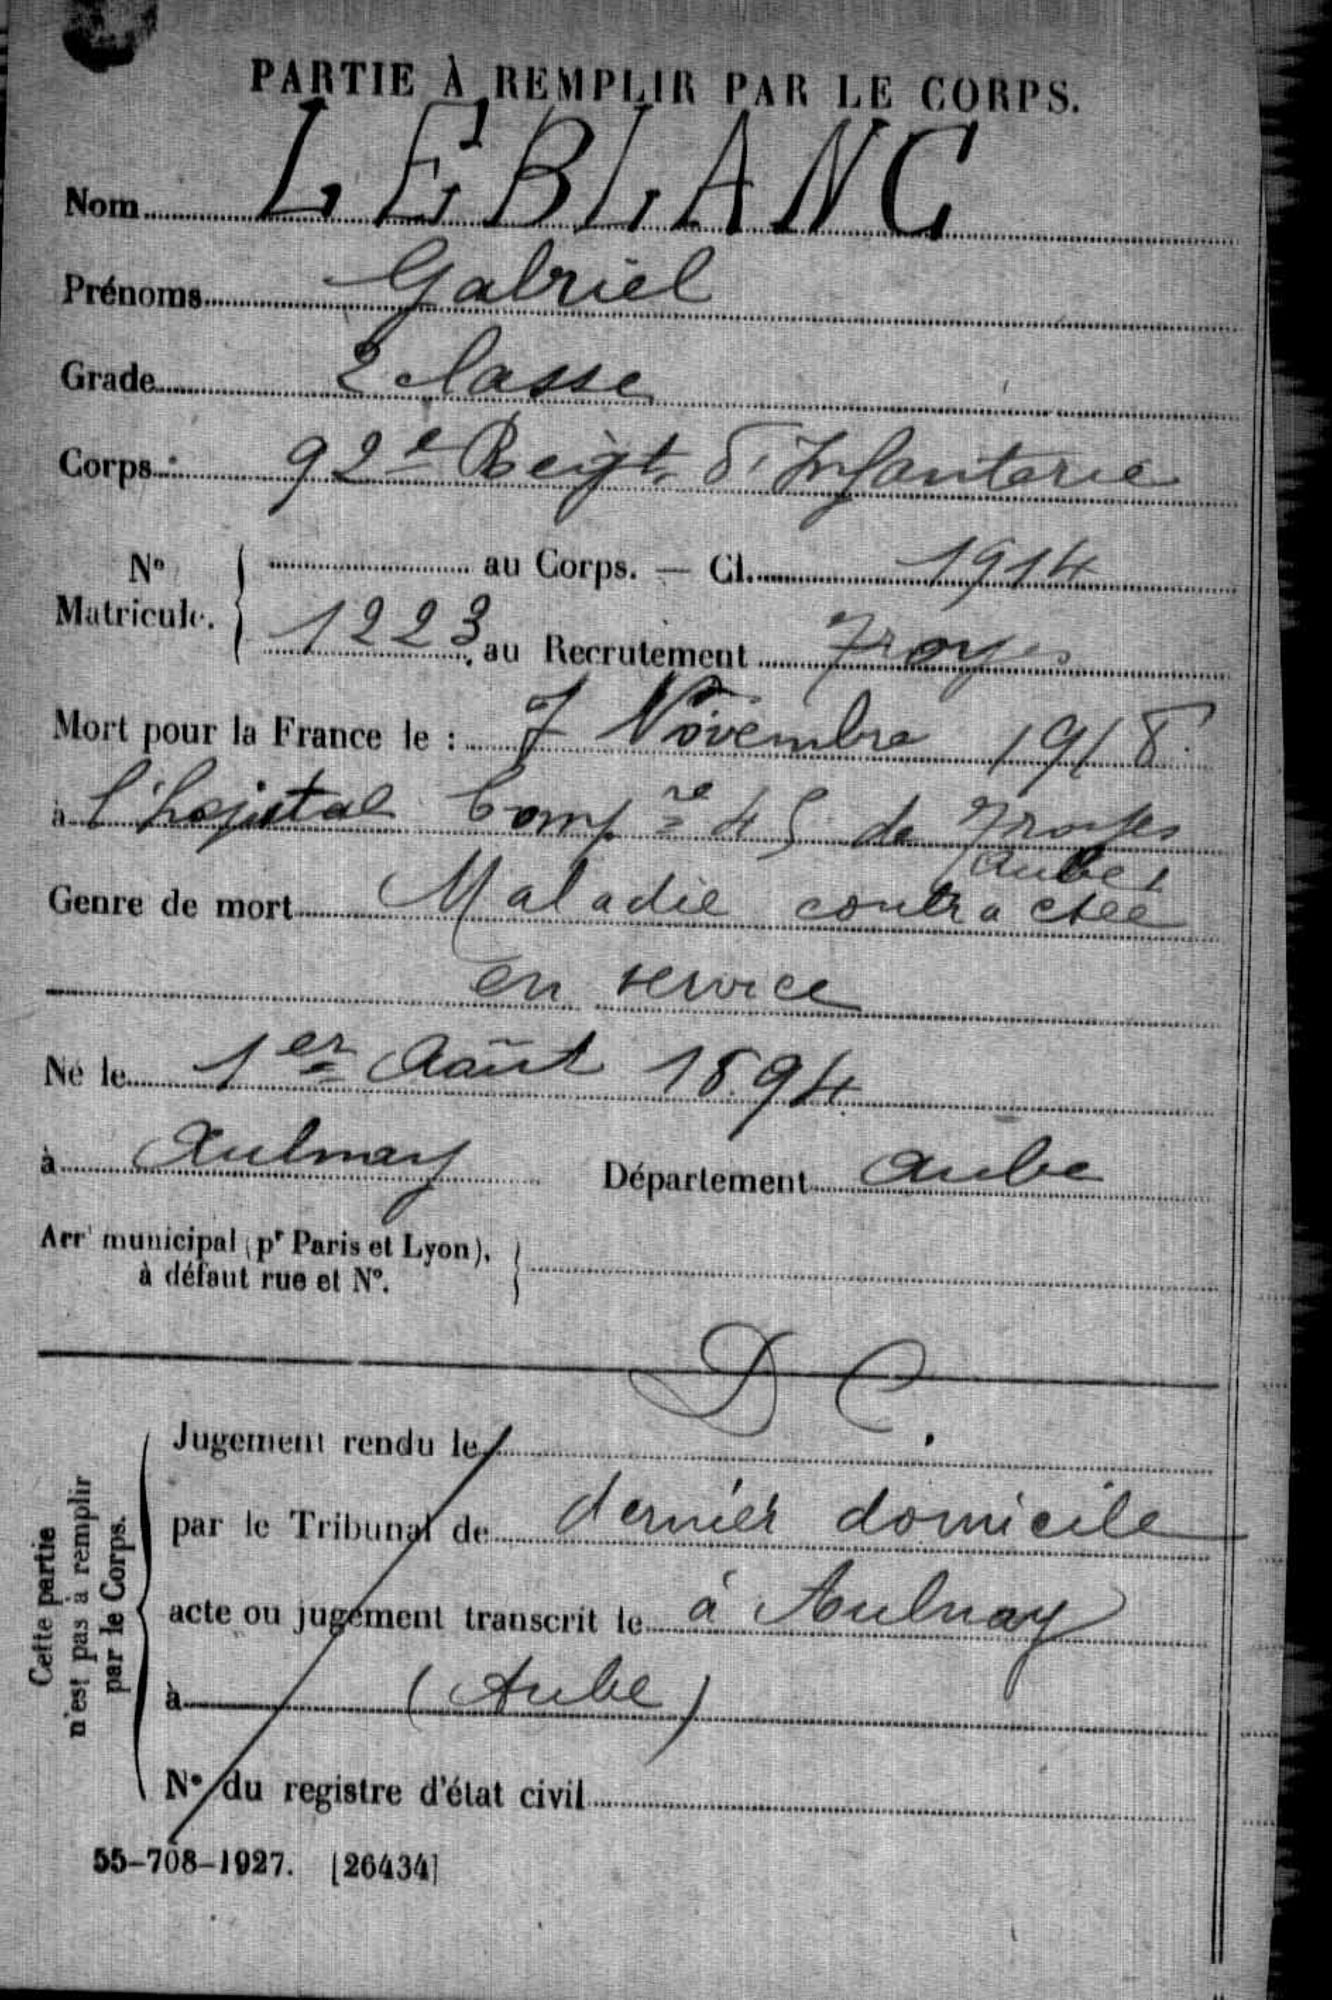 PARTIE À REMPLIR PAR LE CORPS.
Nom LEBLANC
Prénoms Gabriel
Grade 2 classe
Corps 92e Reigt. d'Infanterie
No Matricule. { au Corps. — Cl. 1914
1223 au Recrutement Troyes
Mort pour la France le : 7 Novembre 1918
à l'hopital Comp.re 45 de Troyes
(Aube)
Genre de mort Maladie contractée
en service
Né le 1er Août 1894
à Aulnay Département Aube
Arrt municipal (pr Paris et Lyon), à défaut rue et No. }
D C.
Cette partie n'est pas à remplir par le Corps.
Jugement rendu le
par le Tribunal de dernier domicile
acte ou jugement transcrit le à Aulnay
à (Aube)
No du registre d'état civil
55-708-1927. [26434]